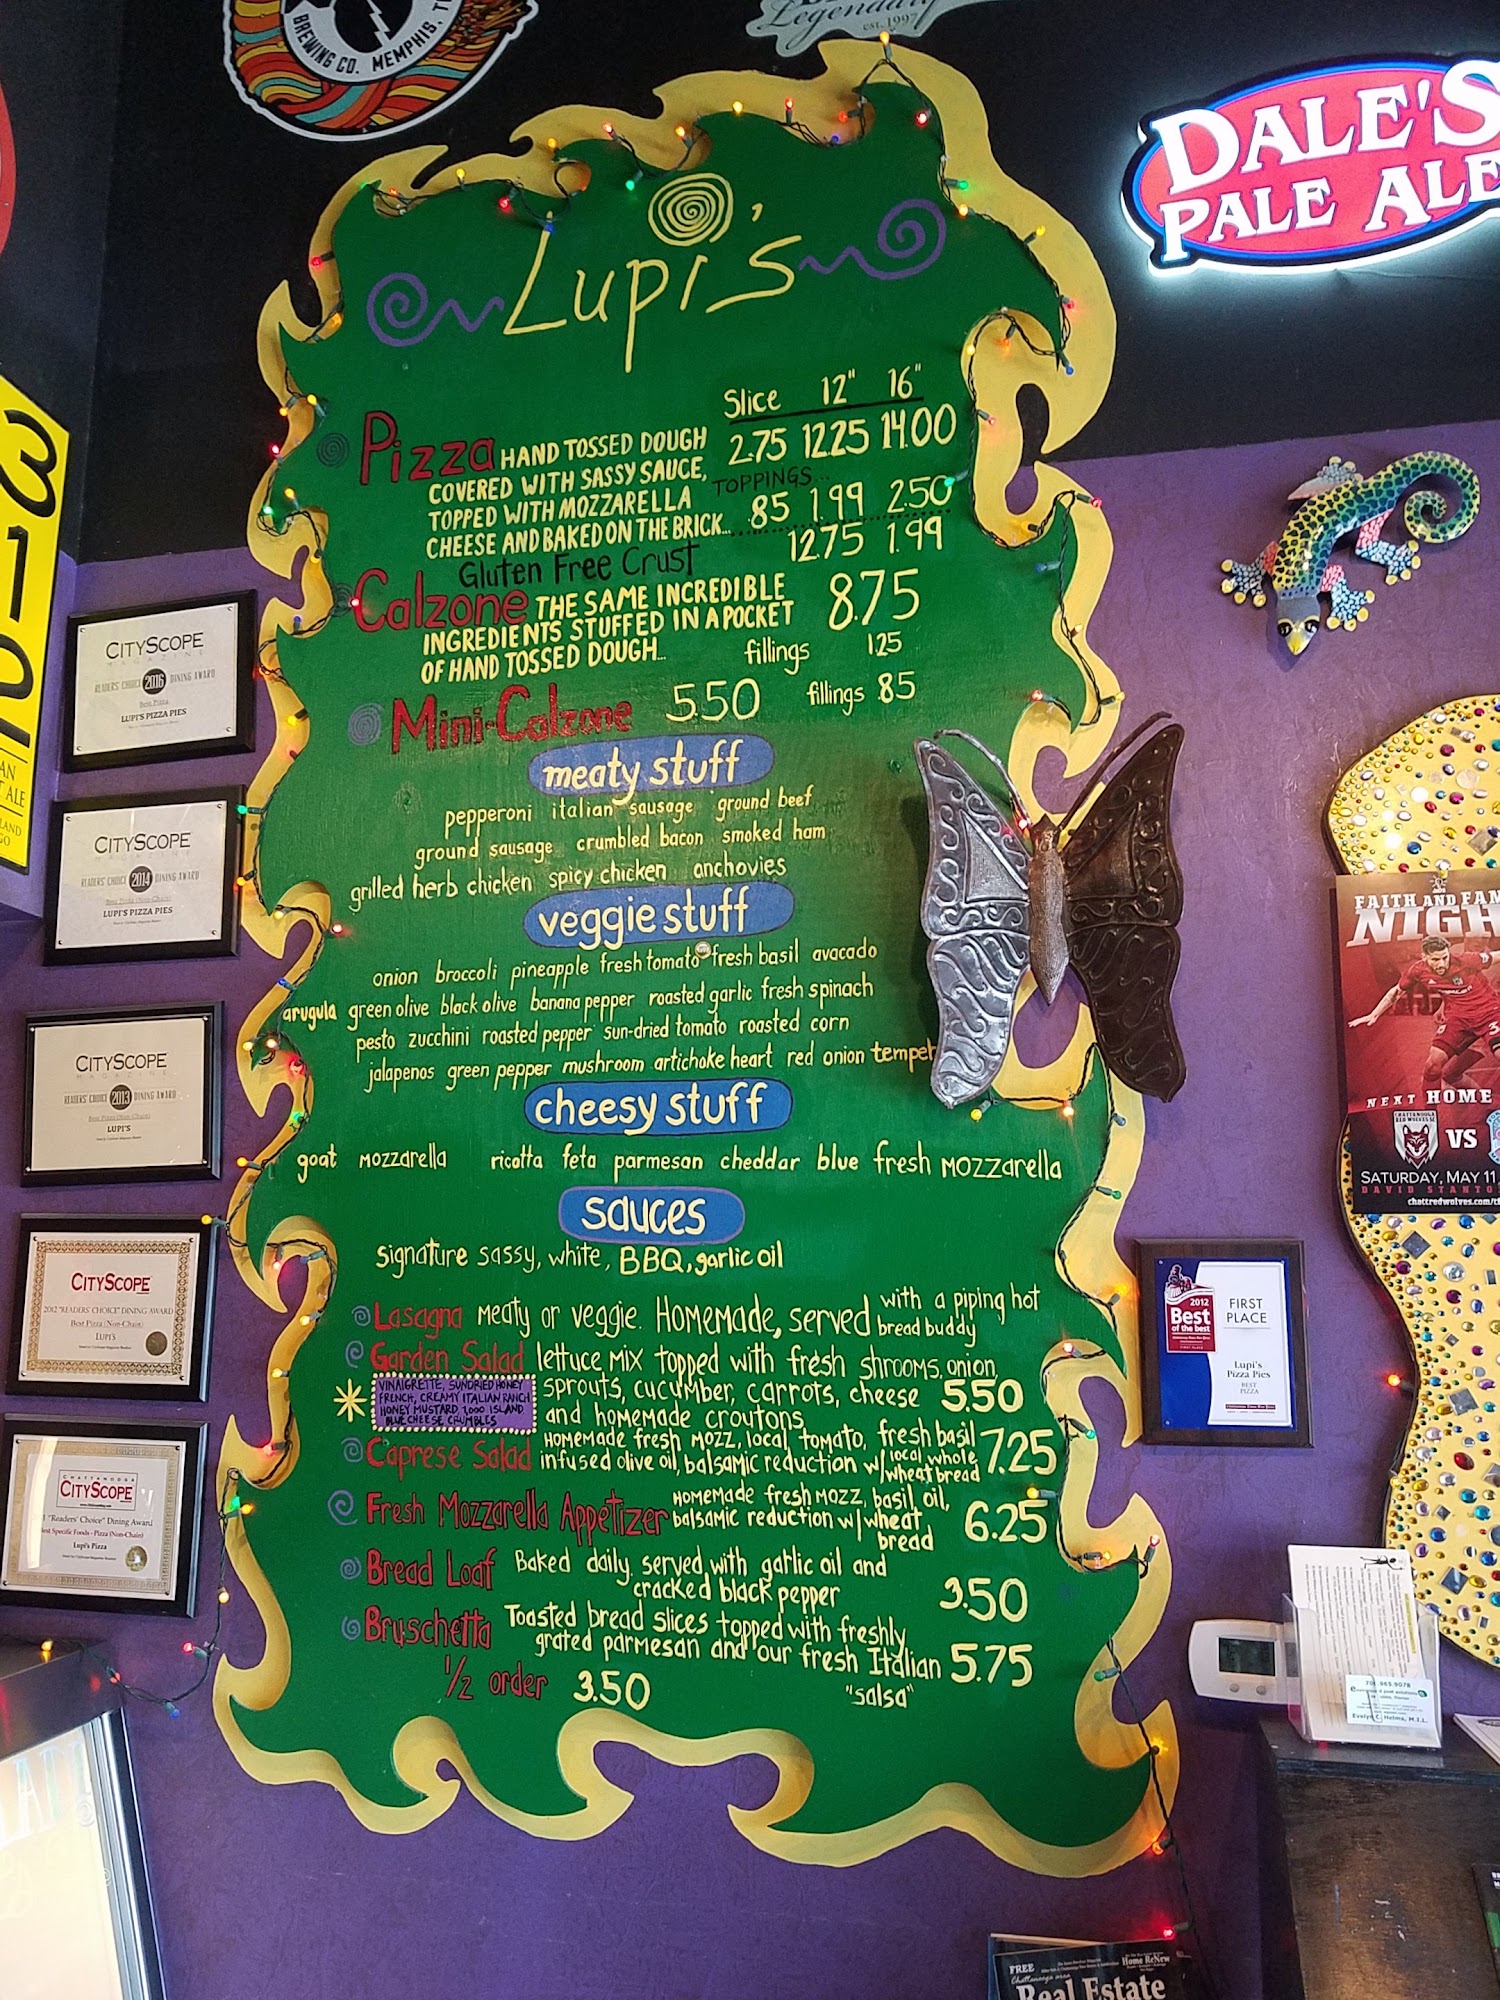 BREWING CO. MEMPHIS, T
Legendary
est. 1997
DALE'S
PALE ALE
312
AN
ALE
LAND
GO
Lupi's
Slice 12" 16"
Pizza HAND TOSSED DOUGH 2.75 12.25 14.00
COVERED WITH SASSY SAUCE, TOPPINGS...
TOPPED WITH MOZZARELLA .85 1.99 2.50
CHEESE AND BAKED ON THE BRICK...
Gluten Free Crust 12.75 1.99
Calzone THE SAME INCREDIBLE 8.75
INGREDIENTS STUFFED IN A POCKET
OF HAND TOSSED DOUGH... fillings 1.25
Mini-Calzone 5.50 fillings .85
meaty stuff
pepperoni italian sausage ground beef
ground sausage crumbled bacon smoked ham
grilled herb chicken spicy chicken anchovies
veggie stuff
onion broccoli pineapple fresh tomato fresh basil avacado
arugula green olive black olive banana pepper roasted garlic fresh spinach
pesto zucchini roasted pepper sun-dried tomato roasted corn
jalapenos green pepper mushroom artichoke heart red onion tempeh
cheesy stuff
goat mozzarella ricotta feta parmesan cheddar blue fresh mozzarella
sauces
signature sassy, white, BBQ, garlic oil
Lasagna meaty or veggie. Homemade, served with a piping hot
bread buddy
Garden Salad lettuce mix topped with fresh shrooms, onion,
sprouts, cucumber, carrots, cheese 5.50
and homemade croutons
VINAIGRETTE, SUNDRIED HONEY
FRENCH, CREAMY ITALIAN RANCH
HONEY MUSTARD, 1,000 ISLAND
BLUE CHEESE CRUMBLES
Caprese Salad Homemade fresh mozz, local tomato, fresh basil 7.25
infused olive oil, balsamic reduction w/ local whole
wheat bread
Fresh Mozzarella Appetizer Homemade fresh mozz, basil, oil, 6.25
balsamic reduction w/ wheat
bread
Bread Loaf Baked daily. served with garlic oil and
cracked black pepper 3.50
Bruschetta Toasted bread slices topped with freshly
grated parmesan and our fresh Italian 5.75
"salsa"
1/2 order 3.50
CITYSCOPE
MAGAZINE
READERS' CHOICE 2016 DINING AWARD
Best Pizza
LUPI'S PIZZA PIES
CITYSCOPE
MAGAZINE
READERS' CHOICE 2014 DINING AWARD
Best Pizza (Non-Chain)
LUPI'S PIZZA PIES
CITYSCOPE
MAGAZINE
READERS' CHOICE 2013 DINING AWARD
Best Pizza (Non-Chain)
LUPI'S
CITYSCOPE
2012 "READERS' CHOICE" DINING AWARD
Best Pizza (Non-Chain)
LUPI'S
CHATTANOOGA
CITYSCOPE
1 "Readers' Choice" Dining Award
est Specific Foods - Pizza (Non-Chain)
Lupi's Pizza
FAITH AND FAM
NIGH
NEXT HOME
CHATTANOOGA
RED WOLVES SC
VS
SATURDAY, MAY 11
DAVID STANTO
chattredwolves.com/
2012
Best
of the best
FIRST PLACE
FIRST
PLACE
Lupi's
Pizza Pies
BEST
PIZZA
Evelyn C. Helms, M.I.L.
FREE
Chattanooga area
Real Estate
Home ReNew